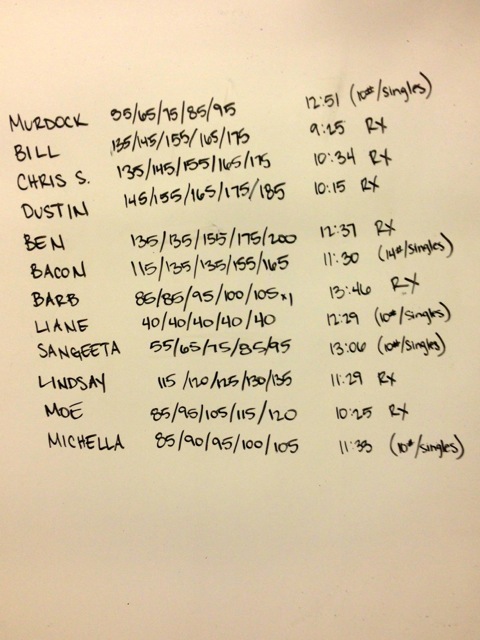 MURDOCK 55/65/75/85/95 12:51 (10#/singles)
BILL 135/145/155/165/175 9:25 RX
CHRIS S. 135/145/155/165/175 10:34 RX
DUSTIN 145/155/165/175/185 10:15 RX
BEN 135/135/155/175/200 12:37 RX
BACON 115/135/135/155/165 11:30 (14#/singles)
BARB 85/85/95/100/105x1 13:46 RX
LIANE 40/40/40/40/40 12:29 (10#/singles)
SANGEETA 55/65/75/85/95 13:06 (10#/singles)
LINDSAY 115/120/125/130/135 11:29 RX
MOE 85/95/105/115/120 10:25 RX
MICHELLA 85/90/95/100/105 11:33 (10#/singles)